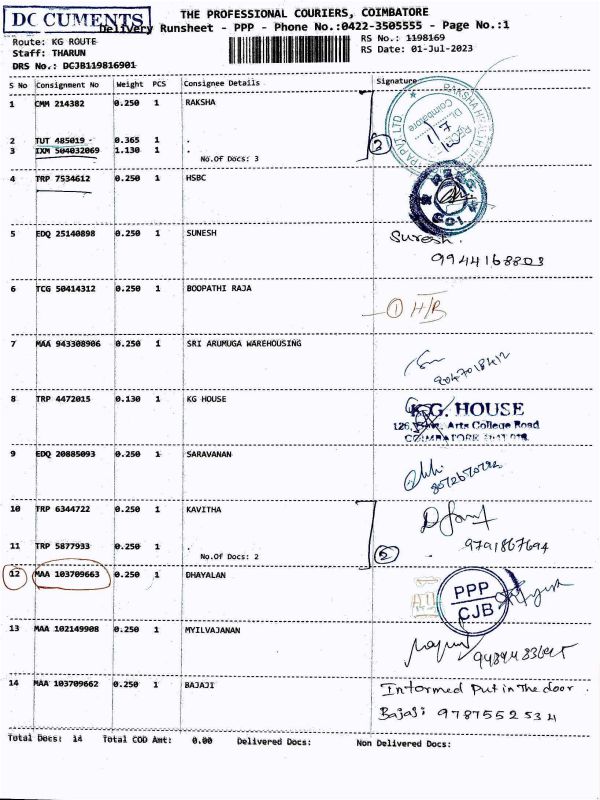 DOCUMENTS
THE PROFESSIONAL COURIERS, COIMBATORE
Delivery Runsheet - PPP - Phone No.:0422-3505555 - Page No.:1
Route: KG ROUTE
RS No.: 1198169
Staff: THARUN
RS Date: 01-Jul-2023
DRS No.: DCJB119816901
S No Consignment No Weight PCS Consignee Details Signature
1 CMM 214382 0.250 1 RAKSHA
2 TUT 485019 0.365 1 .
3 IXM 504032069 1.130 1 .
No.Of Docs: 3
3
4 TRP 7534612 0.250 1 HSBC
5 EDQ 25140898 0.250 1 SUNESH
Suresh.
9944168803
6 TCG 50414312 0.250 1 BOOPATHI RAJA
1 H/B
7 MAA 943308906 0.250 1 SRI ARUMUGA WAREHOUSING
8 TRP 4472015 0.130 1 KG HOUSE
K.G. HOUSE
Arts College Road
9 EDQ 20885093 0.250 1 SARAVANAN
10 TRP 6344722 0.250 1 KAVITHA
11 TRP 5877933 0.250 1 .
9791867694
No.Of Docs: 2
12 MAA 103709663 0.250 1 DHAYALAN
PPP
CJB
13 MAA 102149908 0.250 1 MYILVAJANAN
14 MAA 103709662 0.250 1 BAJAJI
Informed Put in The door.
Bajaji 9787552534
Total Docs: 14 Total COD Amt: 0.00 Delivered Docs: Non Delivered Docs: